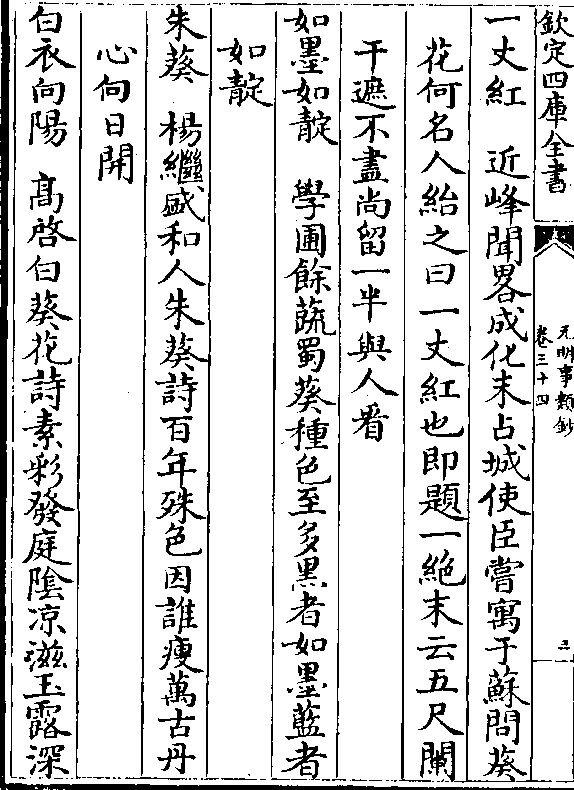 欽定四庫全書
元明事類鈔
卷三十四
三
一丈紅　近峰聞畧成化末占城使臣嘗寓于蘇問葵
花何名人紿之曰一丈紅也即題一絶末云五尺闌
干遮不盡尚留一半與人看
如墨如靛　學圃餘蔬蜀葵種色至多黒者如墨藍者
如靛
朱葵　楊繼盛和人朱葵詩百年殊色因誰瘦萬古丹
心向日開
白衣向陽　髙啓白葵花詩素彩發庭陰凉滋玉露深